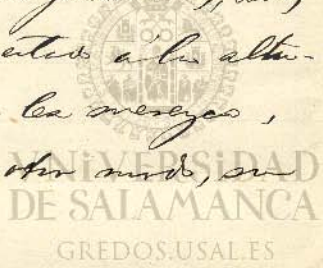 á la altu-
les merezca,
otro modo, su
VNiVERSiDAD
DE SALAMANCA
GREDOS.USAL.ES